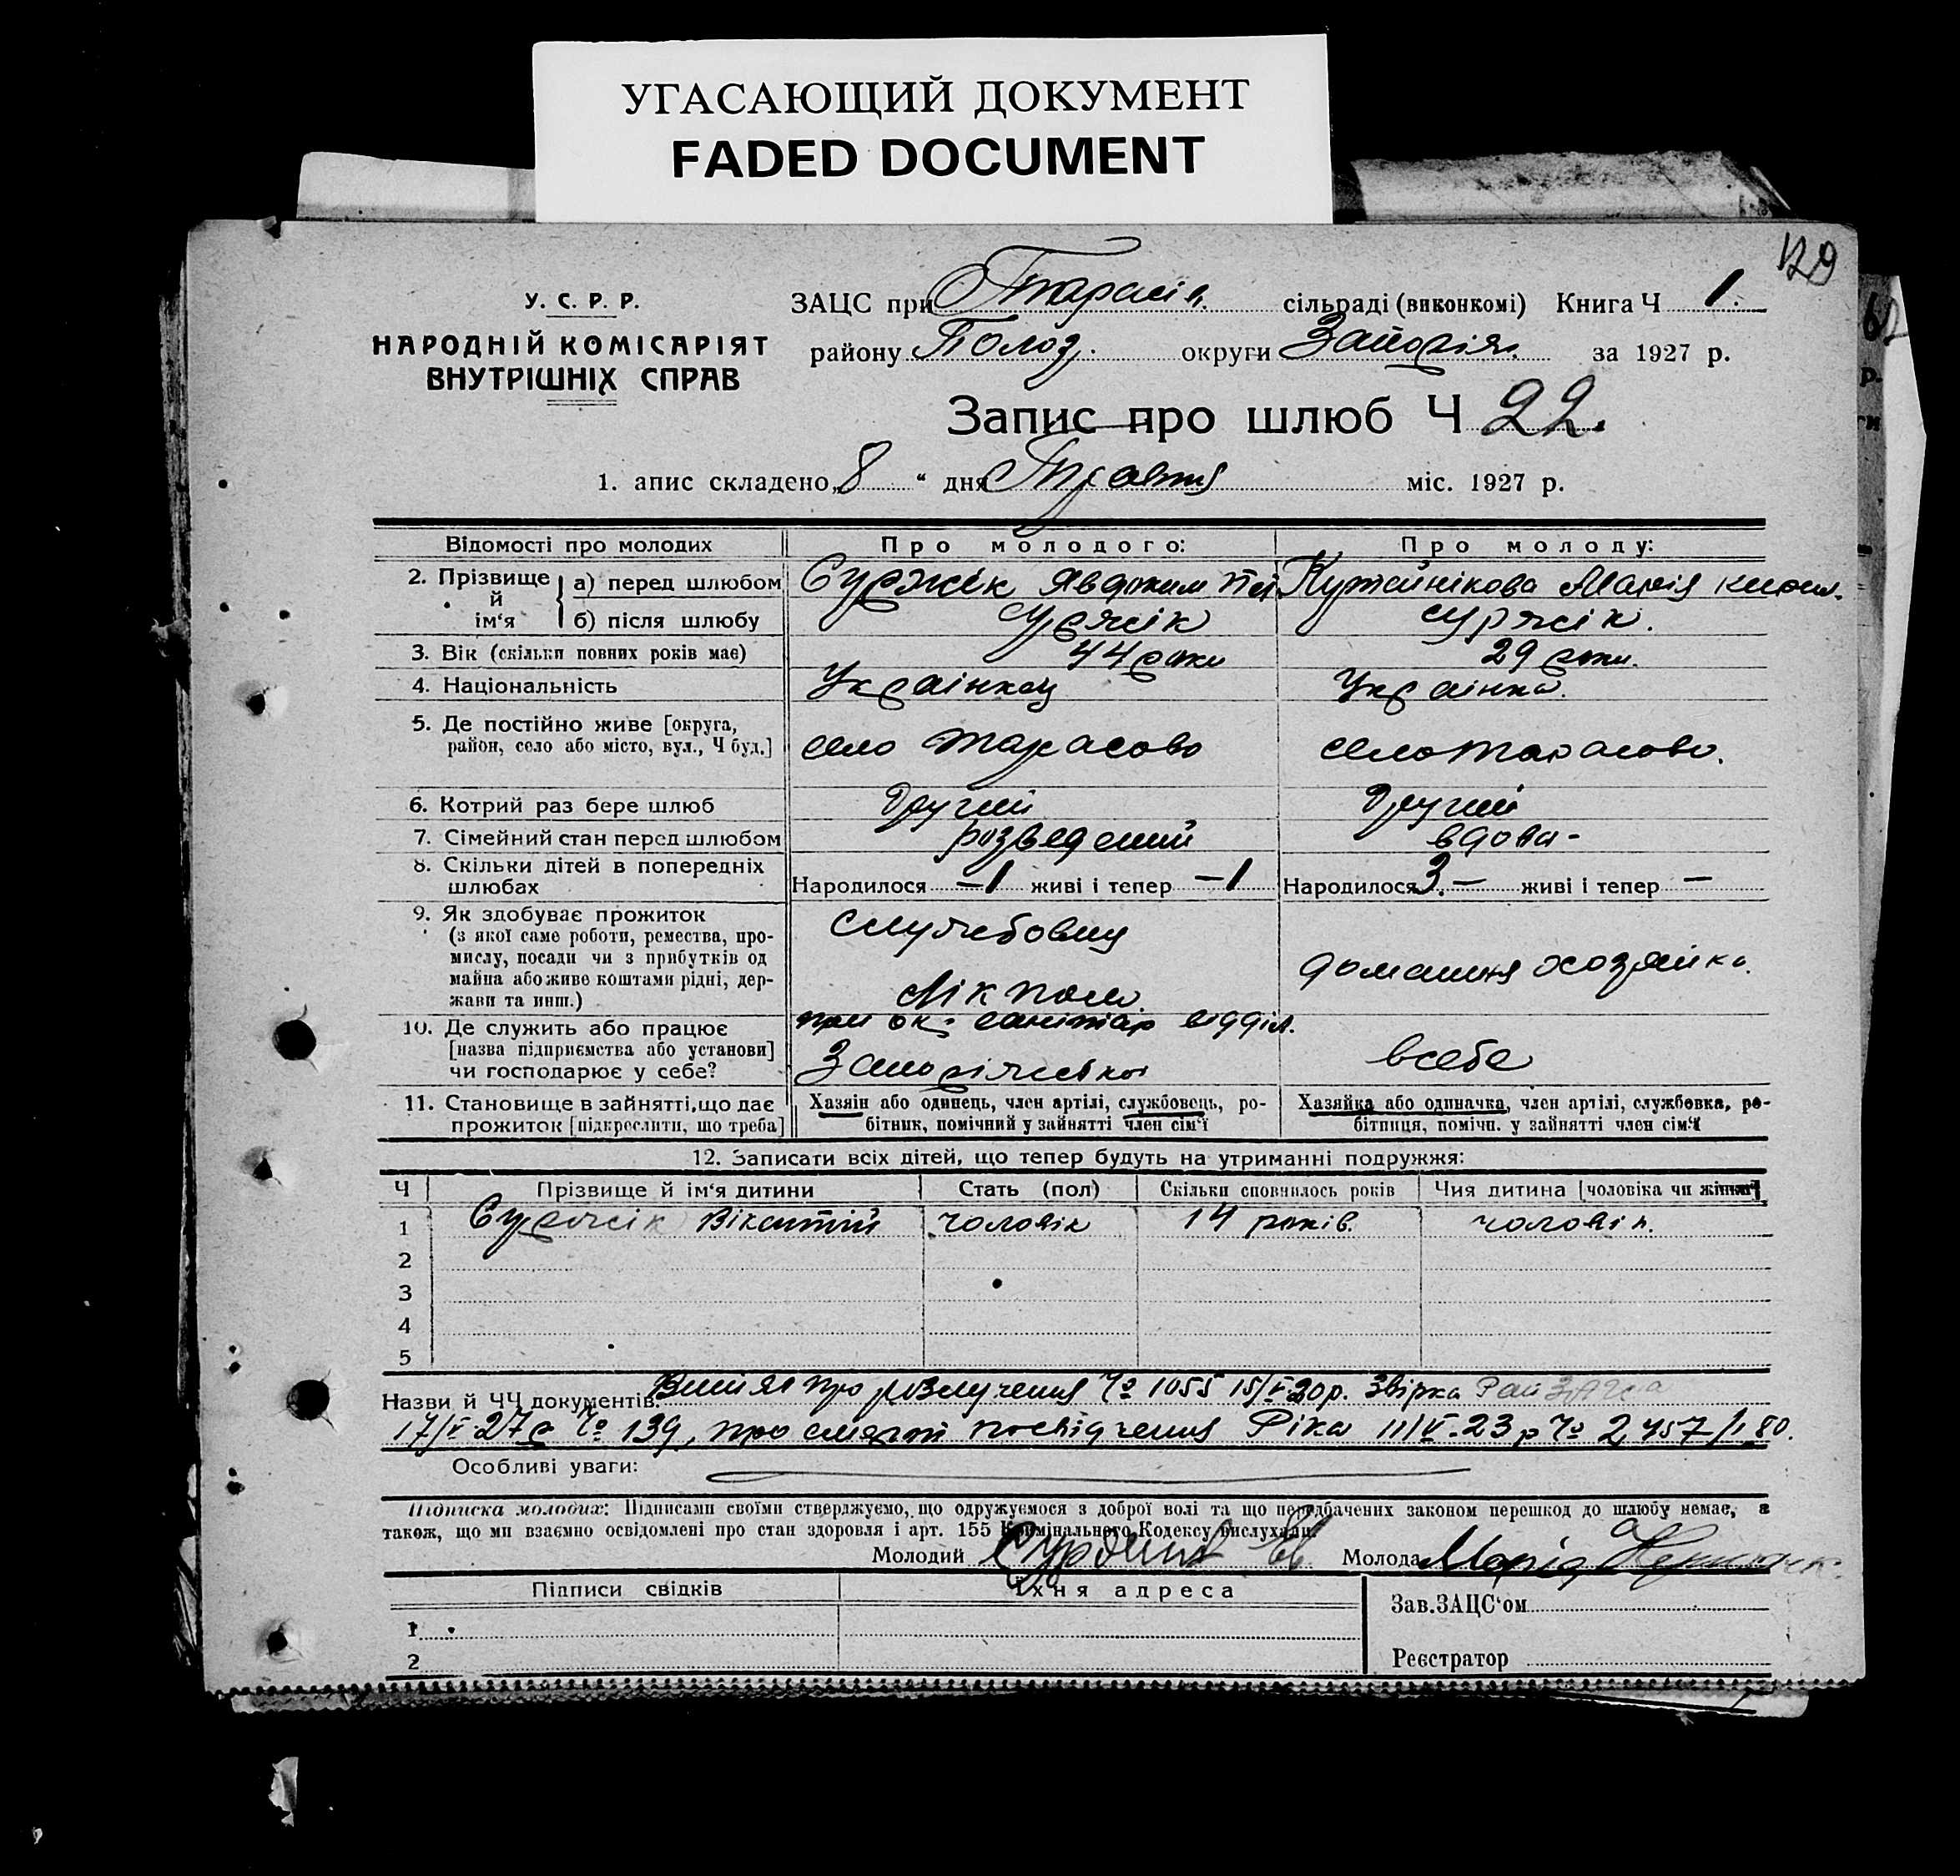 УГАСАЮЩИЙ ДОКУМЕНТ
FADED DOCUMENT
129
У. С. Р. Р.
НАРОДНІЙ КОМІСАРІЯТ
ВНУТРІШНІХ СПРАВ
ЗАЦС при Тарасів. сільраді (виконкомі) Книга Ч 1.
району Полог. округи Запоріж. за 1927 р.
Запис про шлюб Ч 22.
1. апис складено „8 “ дня Травня міс. 1927 р.
Відомості про молодих Про молодого: Про молоду:
2. Прізвище й ім‘я а) перед шлюбом Суржік Явдоким Кутейнікова Марія Кирил.
б) після шлюбу Суржік Суржік.
3. Вік (скільки повних років має) 44 роки 29 роки.
4. Національність Українец Українка.
5. Де постійно живе [округа, район, село або місто, вул., Ч буд.] село Тарасово село Тарасово.
6. Котрий раз бере шлюб Другий Другий
7. Сімейний стан перед шлюбом розведений вдова -
8. Скільки дітей в попередніх шлюбах Народилося -1 живі і тепер -1 Народилося 3. - живі і тепер -
9. Як здобуває прожиток (з якої саме роботи, ремества, промислу, посади чи з прибутків од майна або живе коштами рідні, держави та инш.) Службовец Лікпом домашня хозяйка.
10. Де служить або працює [назва підприємства або установи] чи господарює у себе? при ок. санітар відділ. Запоріжської всебе
11. Становище в зайнятті, що дає прожиток [підкреслити, що треба] Хазяін або одинець, член артілі, службовець, робітник, помічний у зайнятті член сім‘ї Хазяйка або одиначка, член артілі, службовка, робітниця, помічн. у зайнятті член сім‘ї
12. Записати всіх дітей, що тепер будуть на утриманні подружжя:
Ч Прізвище й ім‘я дитини Стать (пол) Скільки сповнилось років Чия дитина [чоловіка чи жінки]
1 Суржік Вікентій чоловік 14 років. чоловік.
2
3
4
5
Назви й ЧЧ документів: про розлучення № 1055 15/V-20р. Звірка Рай ЗАГСа
17/V-27р № 139, про смерть посвідчення Ріка 11/V-23 р № 2457/180.
Особливі уваги:
Підписка молодих: Підписами своїми стверджуємо, що одружуємося з доброї волі та що передбачених законом перешкод до шлюбу немає, а
також, що ми взаємно освідомлені про стан здоровля і арт. 155 Кримінального Кодексу вислухали.
Молодий Молода Марія
Підписи свідків Їхня адреса
Зав.ЗАЦС‘ом
1
Реєстратор
2